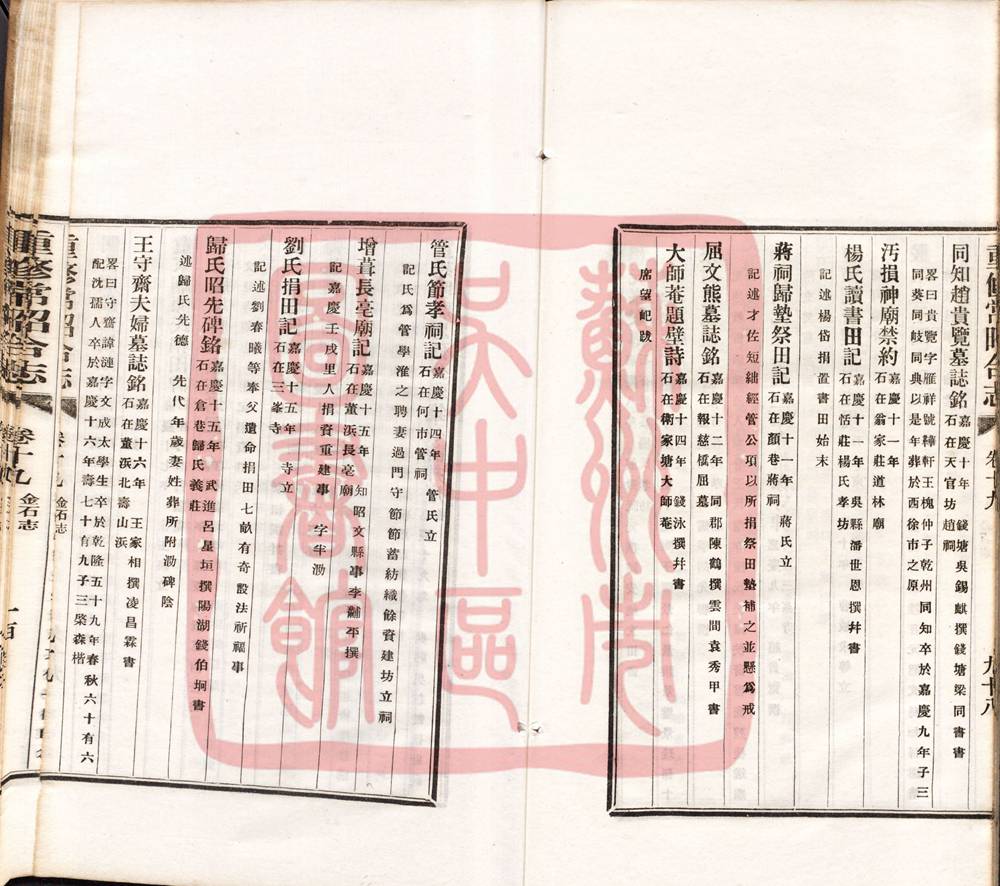 重修常昭合志 卷十九 九十八
同知趙貴覽墓誌銘 嘉慶十年 錢塘吳錫麒撰錢塘梁同書書
石在天官坊趙祠
畧曰貴覽字雁祥號
王槐仲子乾州同知卒於嘉慶九年子三
葵同岐同典以是年葬於西徐市之原
汚損神廟禁約 嘉慶十一年
石在翁家莊道林廟
楊氏讀書田記 嘉慶十一年 吳縣潘世恩撰幷書
石在恬莊楊氏孝坊
記述楊岱捐置書田始末
蔣祠歸墊祭田記 嘉慶十一年 蔣氏立
石在顏巷蔣祠
記述才佐短絀經管公項以所捐祭田墊補之並懸爲戒
屈文熊墓誌銘 嘉慶十二年 同郡陳鶴撰雲間袁秀甲書
石在報慈橋屈墓
大師菴題壁詩 嘉慶十四年 錢泳撰幷書
石在衛家塘大師菴
席望屺跋
管氏節孝祠記 嘉慶十四年 管氏立
石在何市管祠
記氏爲管學淮之聘妻過門守節節蓄紡織餘資建坊立祠
增葺長亳廟記 嘉慶十五年 知昭文縣事李
撰
石在董浜長亳廟
記嘉慶壬戌里人捐資重建事 字半泐
劉氏捐田記 嘉慶十五年 寺立
石在三峯寺
記述劉春曦等奉父遺命捐田七畝有奇設法祈福事
歸氏昭先碑銘 嘉慶十五年 武進呂星垣撰陽湖錢伯坰書
石在倉巷歸氏義莊
述歸氏先德 先代年歲妻姓葬所附泐碑陰
王守齋夫婦墓誌銘 嘉慶十六年 王家相撰凌昌霖書
石在董浜北濤山浜
畧曰守齋諱漣字文成太學生卒於乾隆五十九年春秋六十有六
配沈孺人卒於嘉慶十六年壽七十有九子三棨森楷
重修常昭合志 卷十九 金石志
重修常昭合志 卷十九 金石志
蘇州市吳中區圖書館